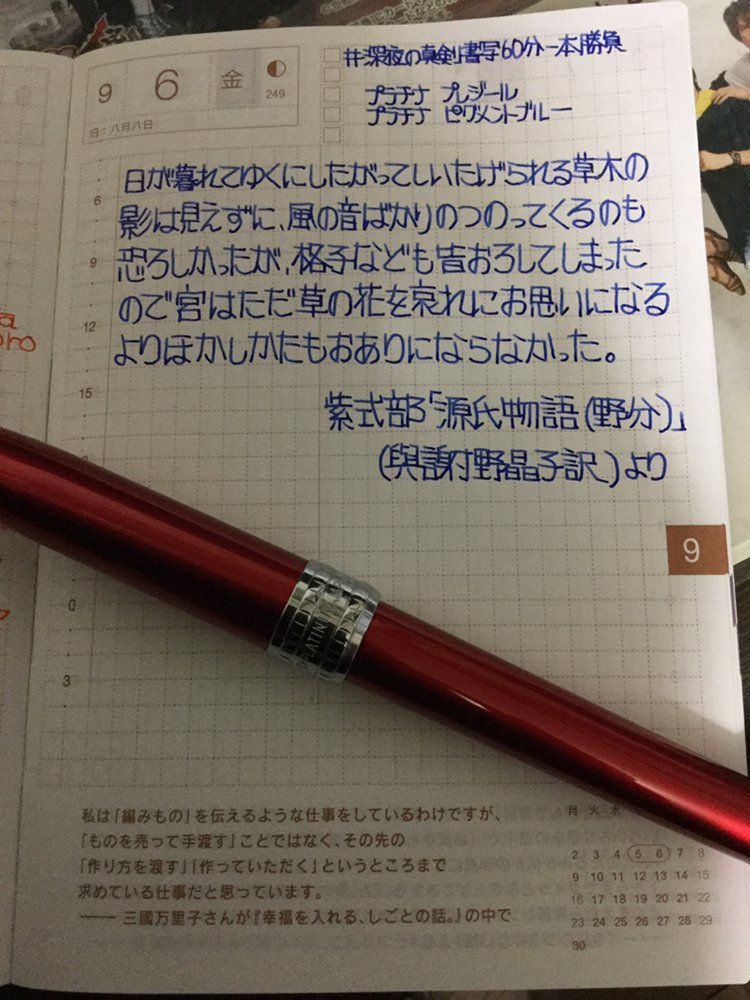 9 6 金
249
旧：八月八日
#深夜の真剣書写60分一本勝負
プラチナ プレジール
プラチナ ピグメントブルー
日が暮れてゆくにしたがってしいたげられる草木の
影は見えずに、風の音ばかりのつのってくるのも
恐ろしかったが、格子なども皆おろしてしまった
ので宮はただ草の花を哀れにお思いになる
よりほかしかたもおありにならなかった。
紫式部「源氏物語(野分)」
(與謝野晶子訳)より
6
9
12
15
0
3
9
PLATINUM
私は「編みもの」を伝えるような仕事をしているわけですが、
「ものを売って手渡す」ことではなく、その先の
「作り方を渡す」「作っていただく」というところまで
求めている仕事だと思っています。
—— 三國万里子さんが『幸福を入れる、しごとの話。』の中で
月 火 水
2 3 4 5 6 7 8
9 10 11 12 13 14 15
16 17 18 19 20 21 22
23 24 25 26 27 28 29
30